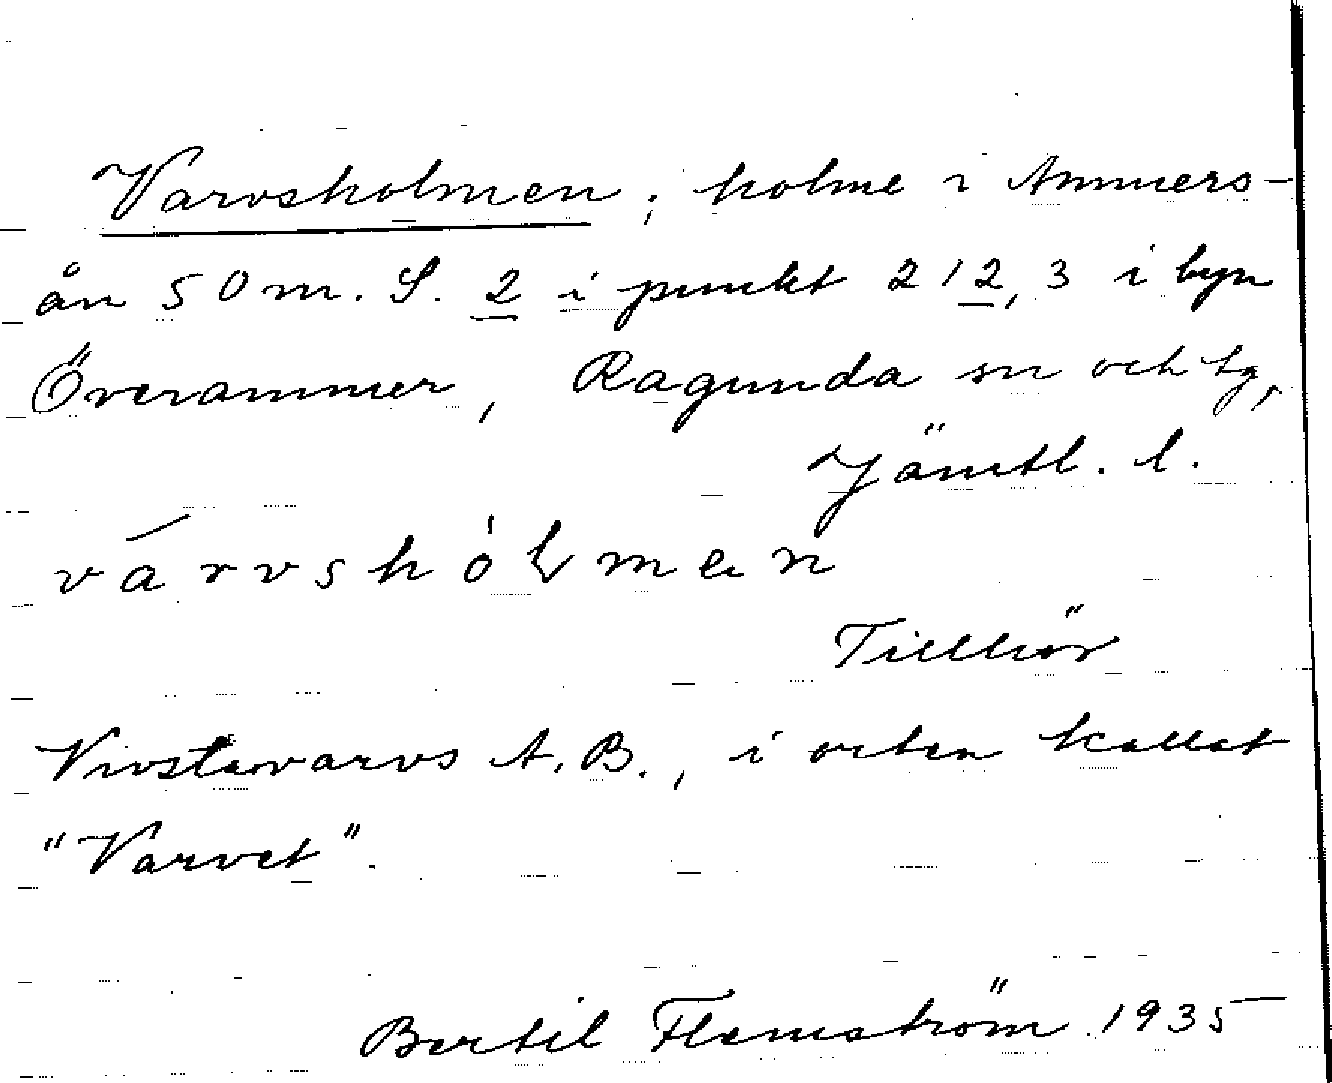 Varvsholmen, holme i Ammers-
ån 50 m. S. 2 i punkt 212,3 i byn
Överammer, Ragunda sn och tg,
Jämtl. l.
várvshólmen
Tillhör
Vivstavarvs A.B., i orten kallat
"Varvet".
Bertil Flemström 1935